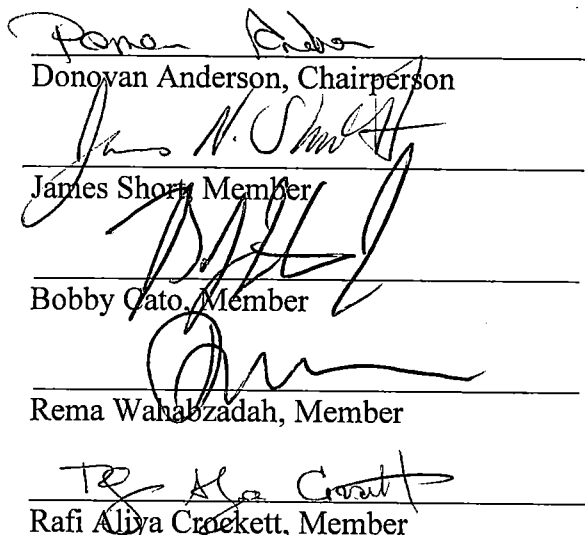 Donovan Anderson, Chairperson
James N. Short
James Short, Member
Bobby Cato, Member
Rema Wahabzadah, Member
Rafi Aliya Crockett
Rafi Aliya Crockett, Member